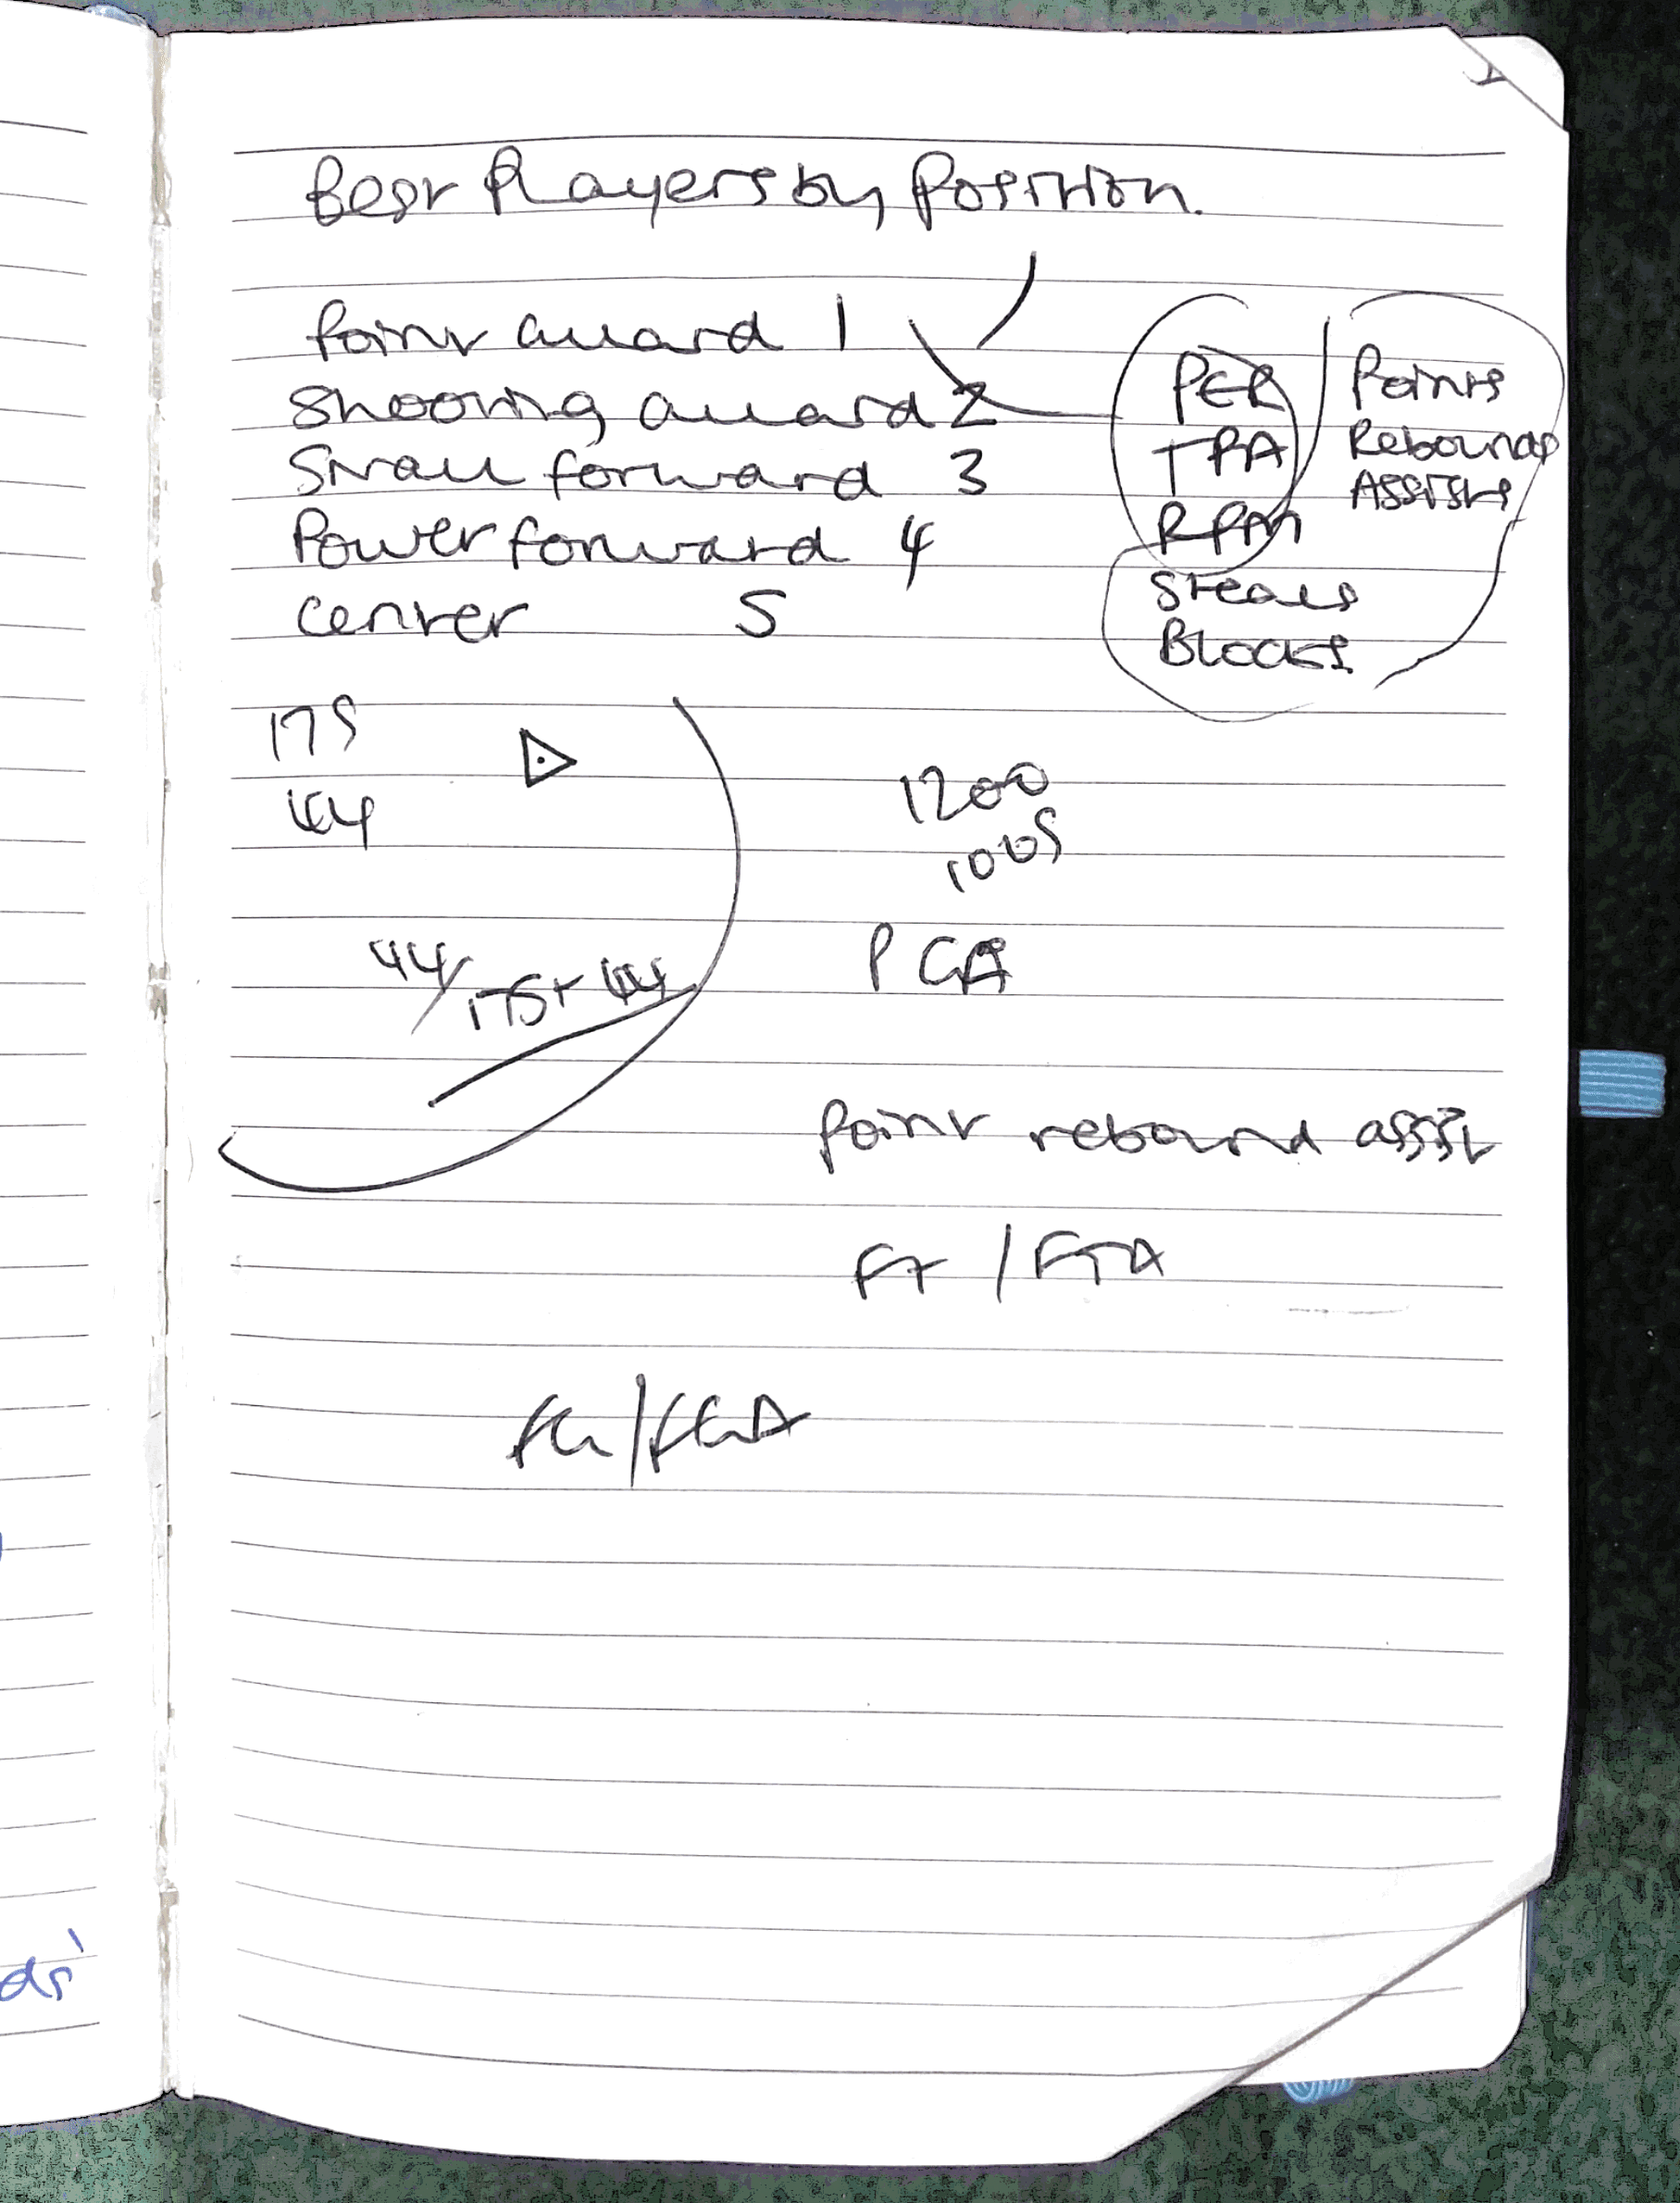 Best Players by Position.
Point Guard 1
Shooting Guard 2
Small forward 3
Power forward 4
Center 5
PER
TPA
RPM
Steals
Blocks
Points
Rebounds
Assists
175
44
1200
1005
44/175+44
PGA
Point rebound assist
FT / FTA
FG/FGA